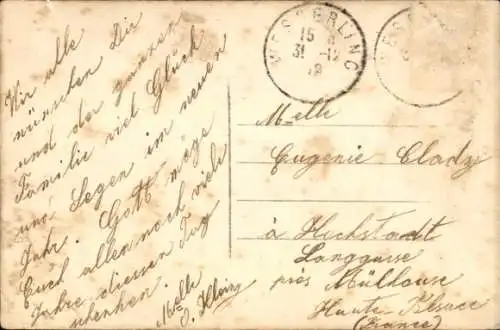 Wir alle
wünschen Dir
und der ganzen
Familie viel Glück
und Segen im neuen
Jahr. Gott möge
Euch allen noch viele
Jahre diesen Tag
schenken.
Melle
E. Klein
WESSERLING
15
31 -12
18
Melle
Eugenie Clady
à Hochstadt
Langgasse
près Mülhouse
Haute Alsace
(France)